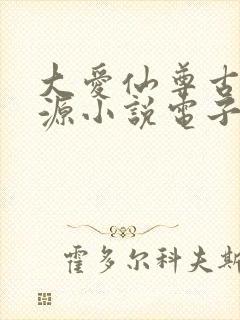 大愛仙尊古
源小說電子
霍多尔科夫斯